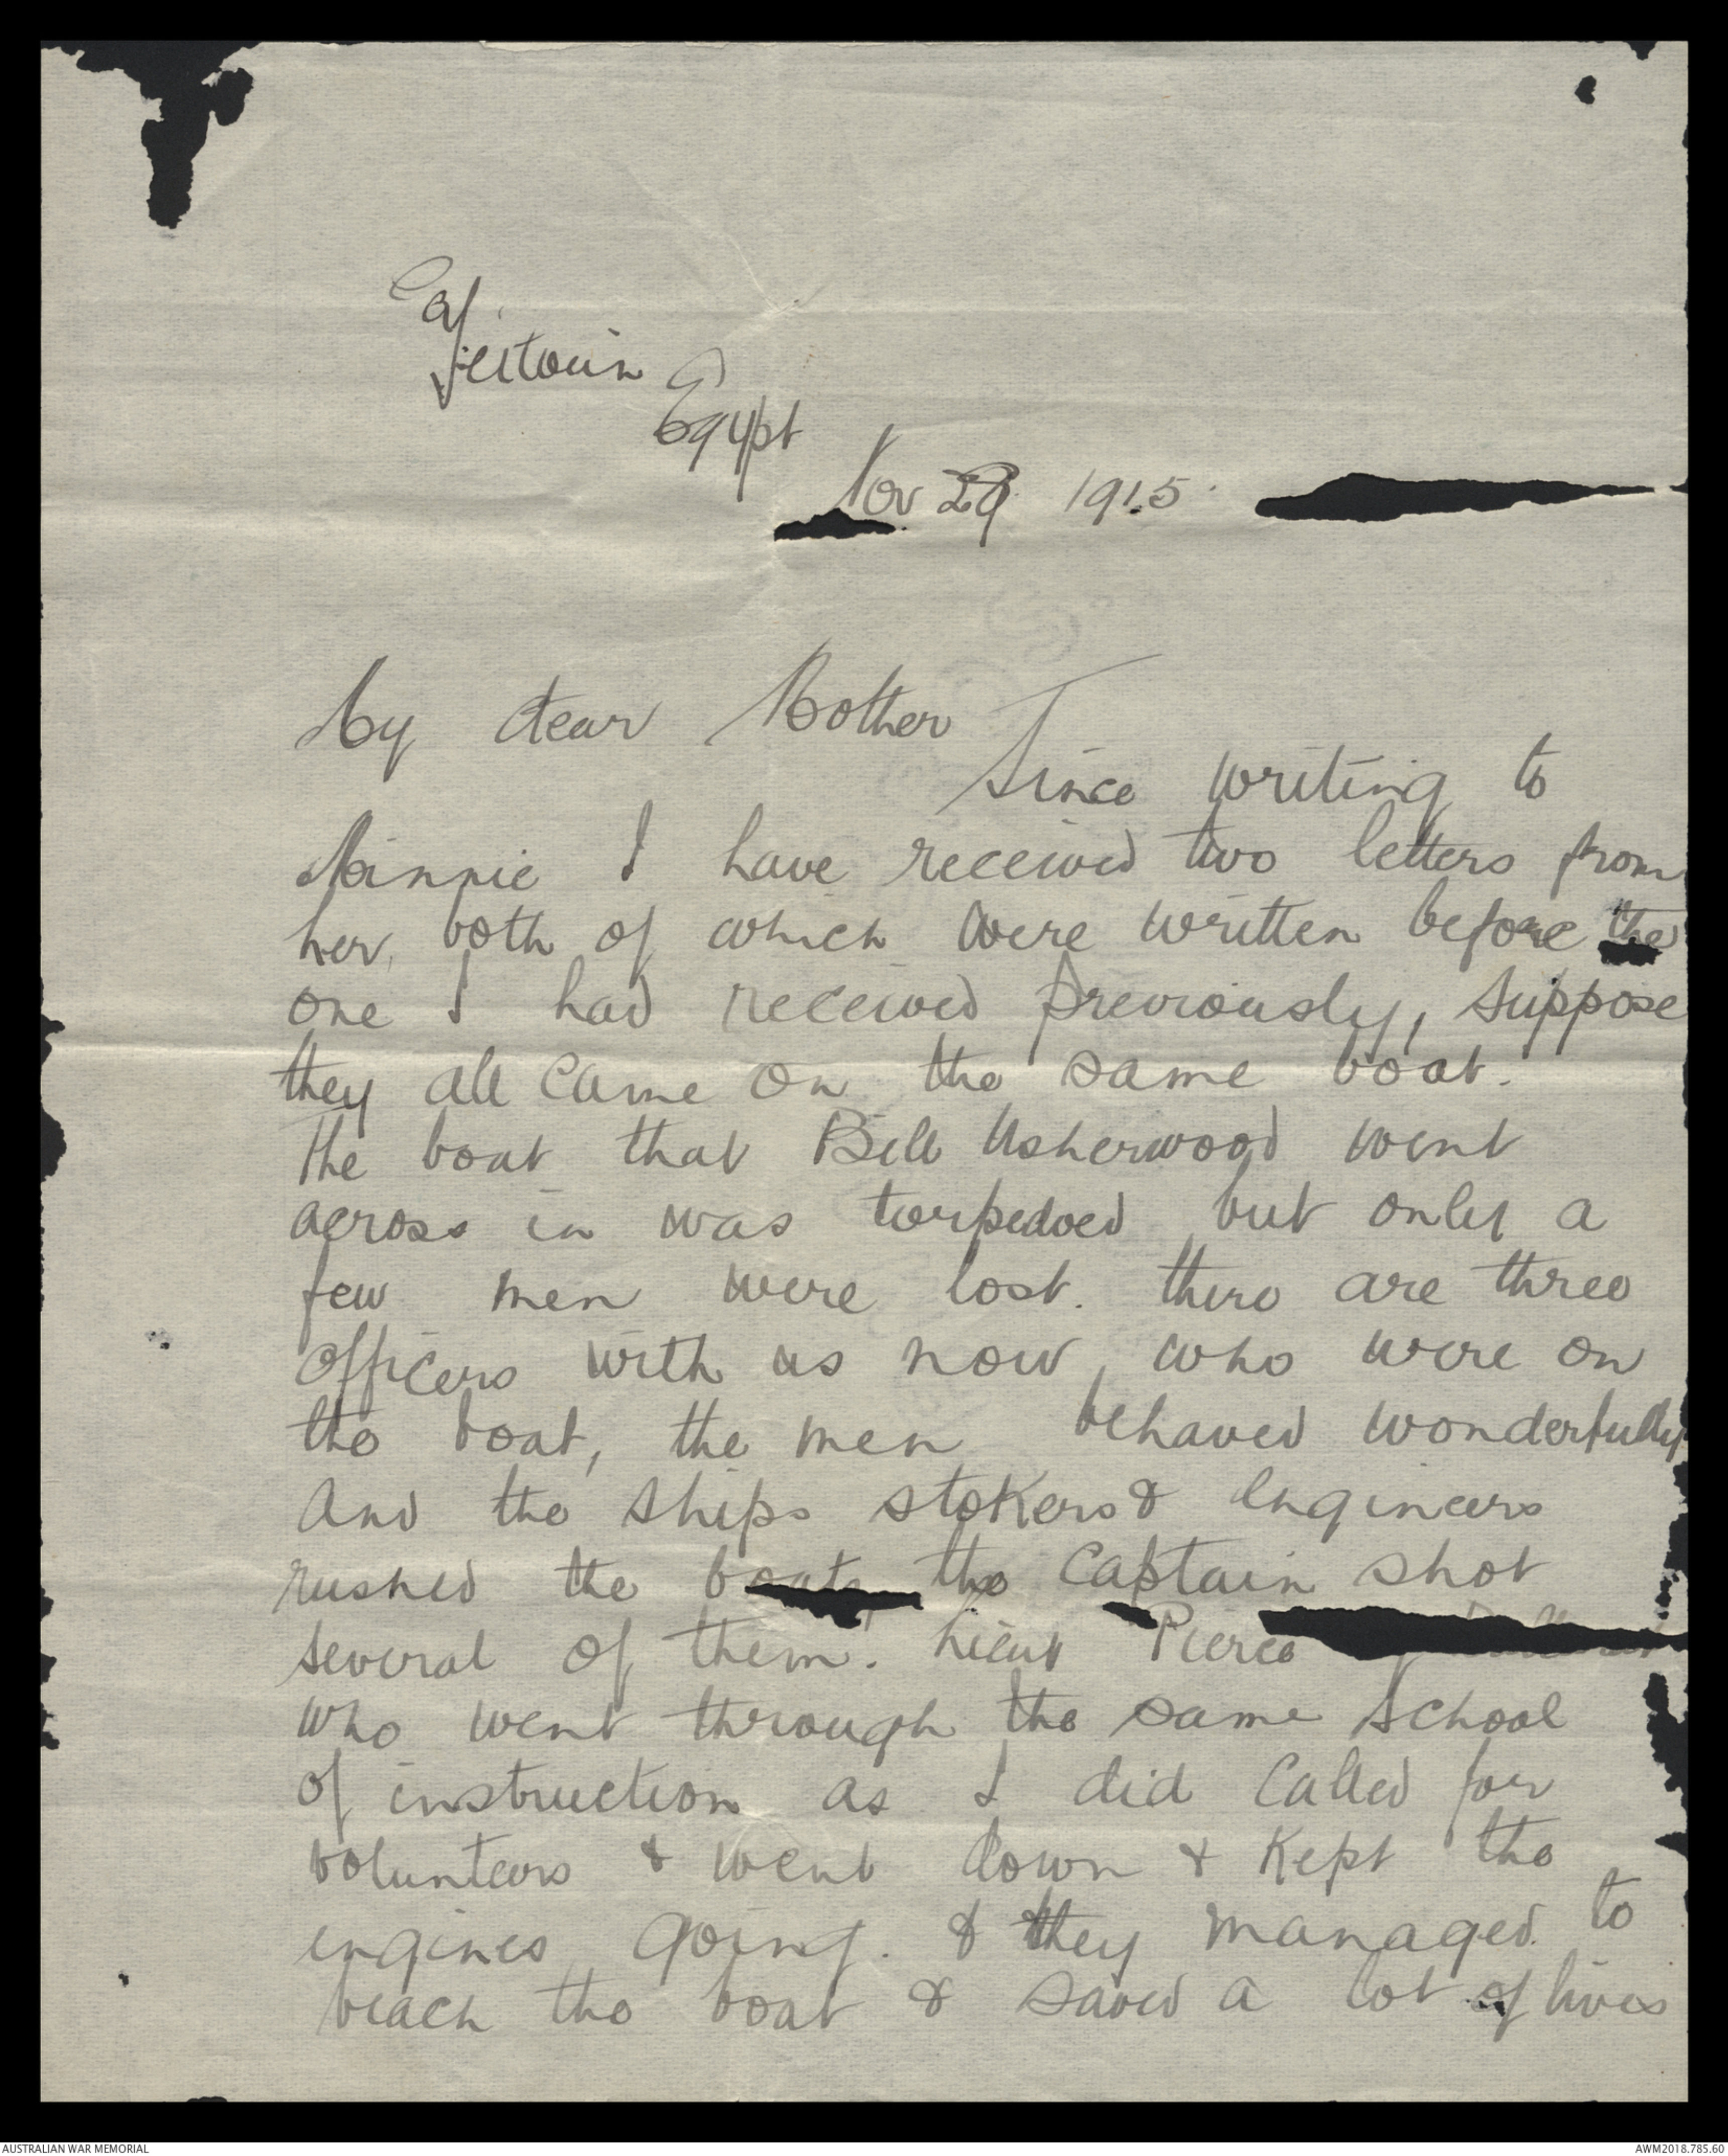 Zeitoun
Egypt
Nov 29 1915.
My dear Mother
Since writing to
Minnie I have received two letters from
her, both of which were written before the
one I had received previously, suppose
they all came on the same boat.
The boat that Bill Usherwood went
across in was torpedoed but only a
few men were lost. there are three
Officers with us now, who were on
the boat, the men behaved wonderfully
and the ships stokers & Engineers
rushed the boats the Captain shot
several of them. Lieut Pierce
who went through the same School
of instruction as I did Called for
volunteers & went down & kept the
engines going. & they managed to
beach the boat & saved a lot of lives
AUSTRALIAN WAR MEMORIAL
AWM2018.785.60